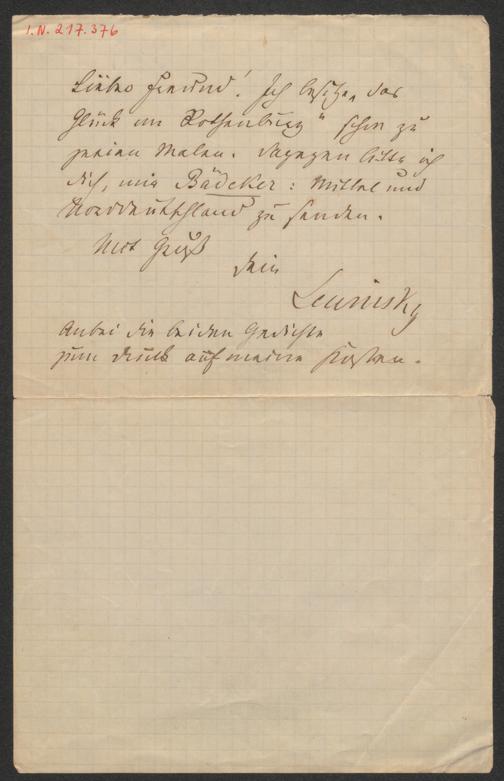 I.N. 217.376
Lieber Freund! Ich besitze „das
Glück im Rothenburg“ schon zu
zweien Malen. Dagegen bitte ich
dich, mir Bädeker: Mittel und
Norddeutschland zu senden.
Mit Gruß
dein
Lewinsky
Anbei die beiden Gedichte
zum Druck auf meine Kosten.